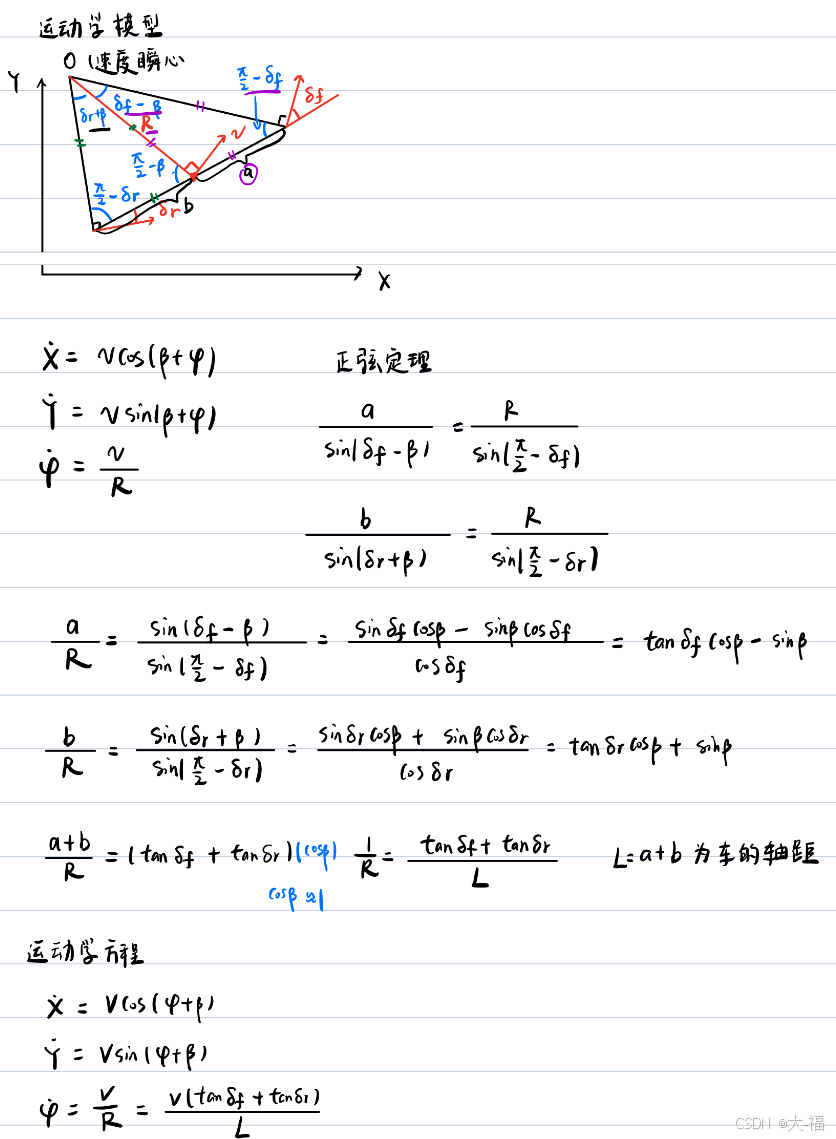 运动学模型
O (速度瞬心
Y
π/2 - δf
δf
δf - β
δr+β
R
v
π/2 - β
a
π/2 - δr
δr
b
X
Ẋ = vcos(β+φ)
正弦定理
Ẏ = vsin(β+φ)
a / sin(δf - β) = R / sin(π/2 - δf)
φ̇ = v / R
b / sin(δr+β) = R / sin(π/2 - δr)
a/R = sin(δf - β) / sin(π/2 - δf) = sinδf cosβ - sinβ cosδf / cosδf = tanδf cosβ - sinβ
b/R = sin(δr + β) / sin(π/2 - δr) = sinδr cosβ + sinβ cosδr / cosδr = tanδr cosβ + sinβ
a+b / R = (tanδf + tanδr)(cosβ) 1/R = tanδf + tanδr / L L=a+b 为车的轴距
cosβ ≈1
运动学方程
Ẋ = Vcos(φ+β)
Ẏ = Vsin(φ+β)
φ̇ = V/R = V(tanδf + tanδr) / L
CSDN @大-福